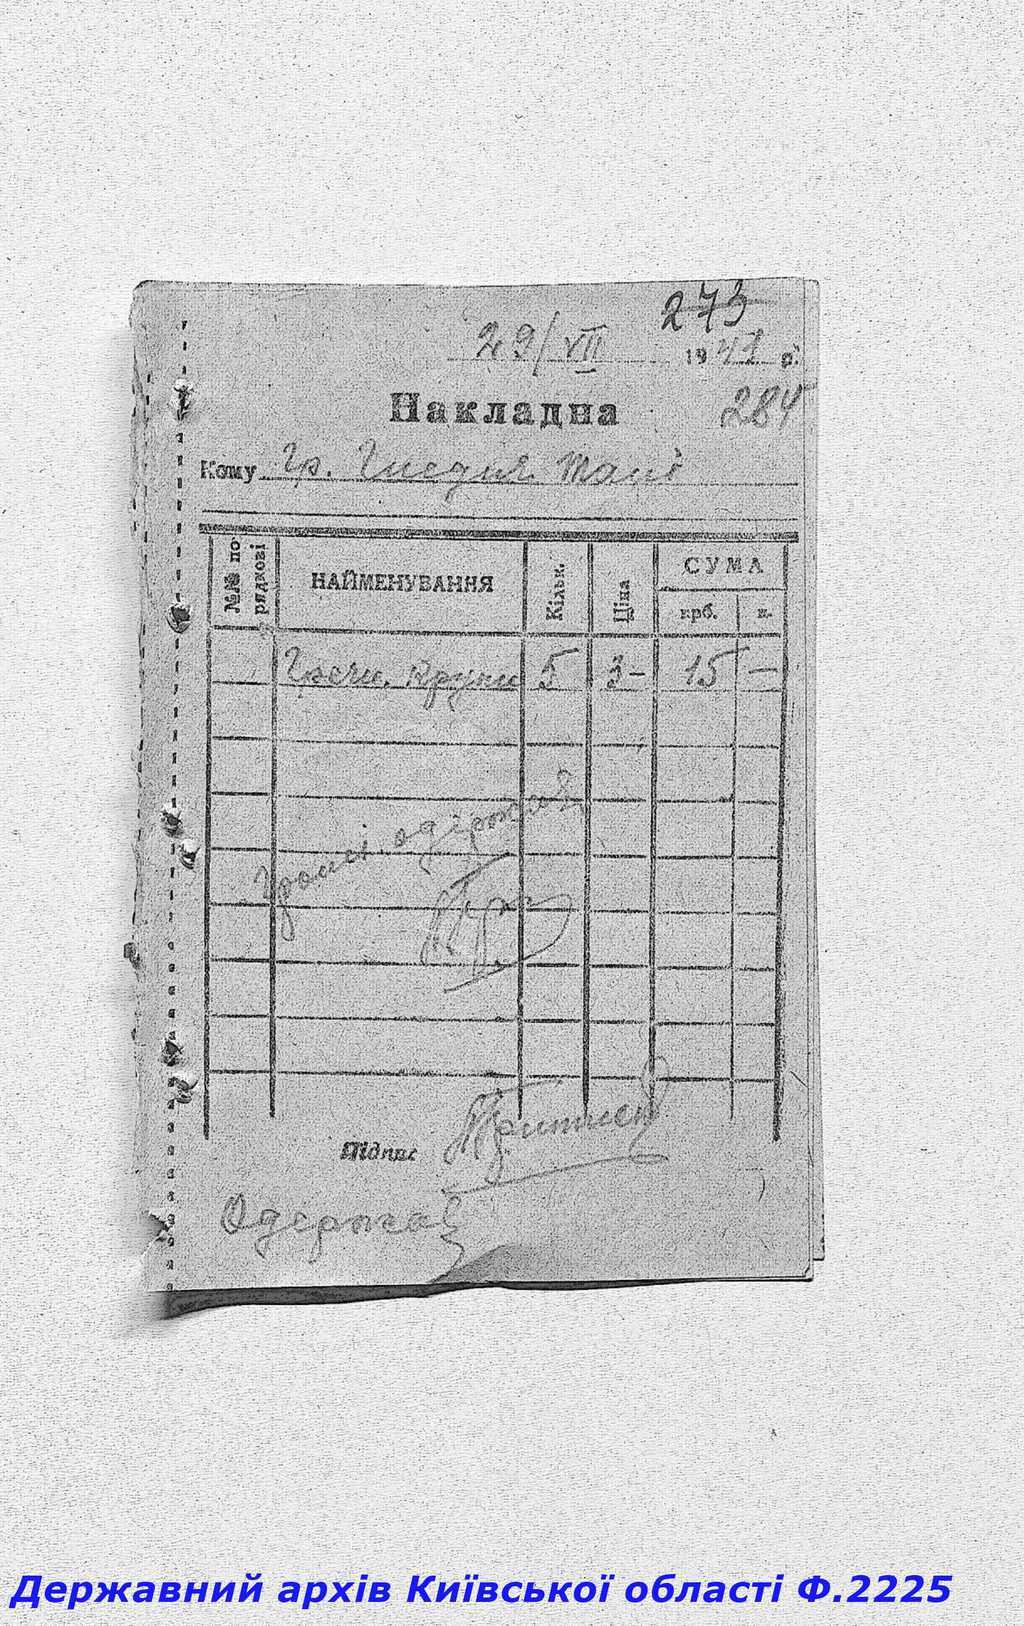 273
29/VII 1941 р.
284
Накладна
Кому гр.
№№ по рядкові
НАЙМЕНУВАННЯ
Кільк.
Ціна
СУМА
крб.
к.
Гречи. крупи 5 3- 15 -
Гроші одержав
Підпис
Одержав
Державний архів Київської області Ф.2225